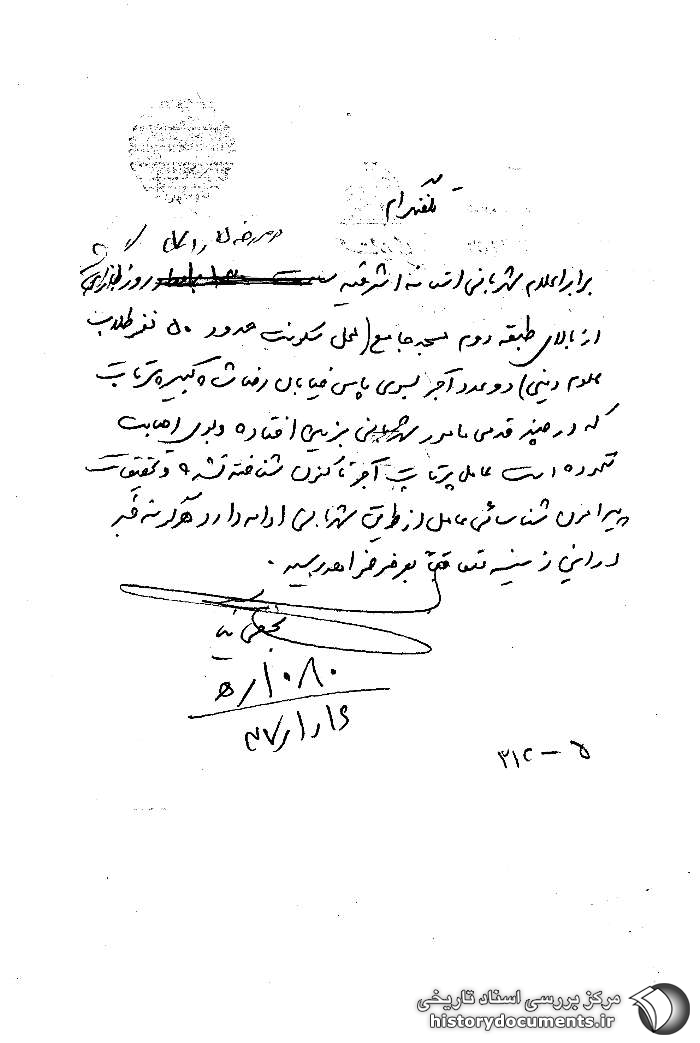 تلفنگرام
برابر اعلام شهربانی آستانه اشرفیه روز
از بالای طبقه دوم مسجد جامع (محل سکونت حدود ۵۰ نفر طلاب
علوم دینی) دو عدد آجر بسوی پاس خیابان رضا شاه کبیر پرتاب
که در چند قدمی مامور شهربانی بزمین افتاده و بوی اصابت
ننموده است عامل پرتاب آجر تاکنون شناخته نشده و تحقیقات
پیرامون شناسائی عامل از طریق شهربانی ادامه دارد هرگونه خبر
در این زمینه متعاقباً بعرض خواهد رسید.
۱۰۸۰/ﻫ
۳۱۲ – ۵
مرکز بررسی اسناد تاریخی
historydocuments.ir